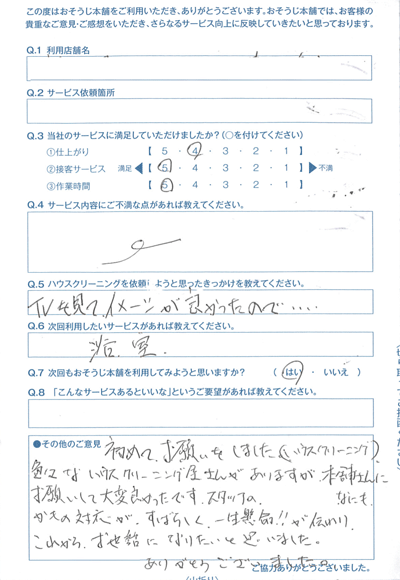 この度はおそうじ本舗をご利用いただき、ありがとうございます。おそうじ本舗では、お客様の
貴重なご意見・ご感想をいただき、さらなるサービス向上に反映していきたいと思っております。
Q.1 利用店舗名
Q.2 サービス依頼箇所
Q.3 当社のサービスに満足していただけましたか?(○を付けてください)
①仕上がり 【 5 ・ 4 ・ 3 ・ 2 ・ 1 】
②接客サービス 満足 ◀【 5 ・ 4 ・ 3 ・ 2 ・ 1 】▶ 不満
③作業時間 【 5 ・ 4 ・ 3 ・ 2 ・ 1 】
Q.4 サービス内容にご不満な点があれば教えてください。
Q.5 ハウスクリーニングを依頼 ようと思ったきっかけを教えてください。
TVを見て、イメージが良かったので‥‥
Q.6 次回利用したいサービスがあれば教えてください。
浴室
Q.7 次回もおそうじ本舗を利用してみようと思いますか? ( はい ・ いいえ )
Q.8 「こんなサービスあるといいな」というご要望があれば教えてください。
●その他のご意見 初めて、お願いをしました(ハウスクリーニング)
色々なハウスクリーニング屋さんがありますが、本舗さんに
お願いして大変良かったです。スタッフの、 なにも
かもの対応が、すばらしく、一生懸命!!が伝わり、
これからも お世話になりたいと思いました。
ありがとうございました。
ご協力ありがとうございました。